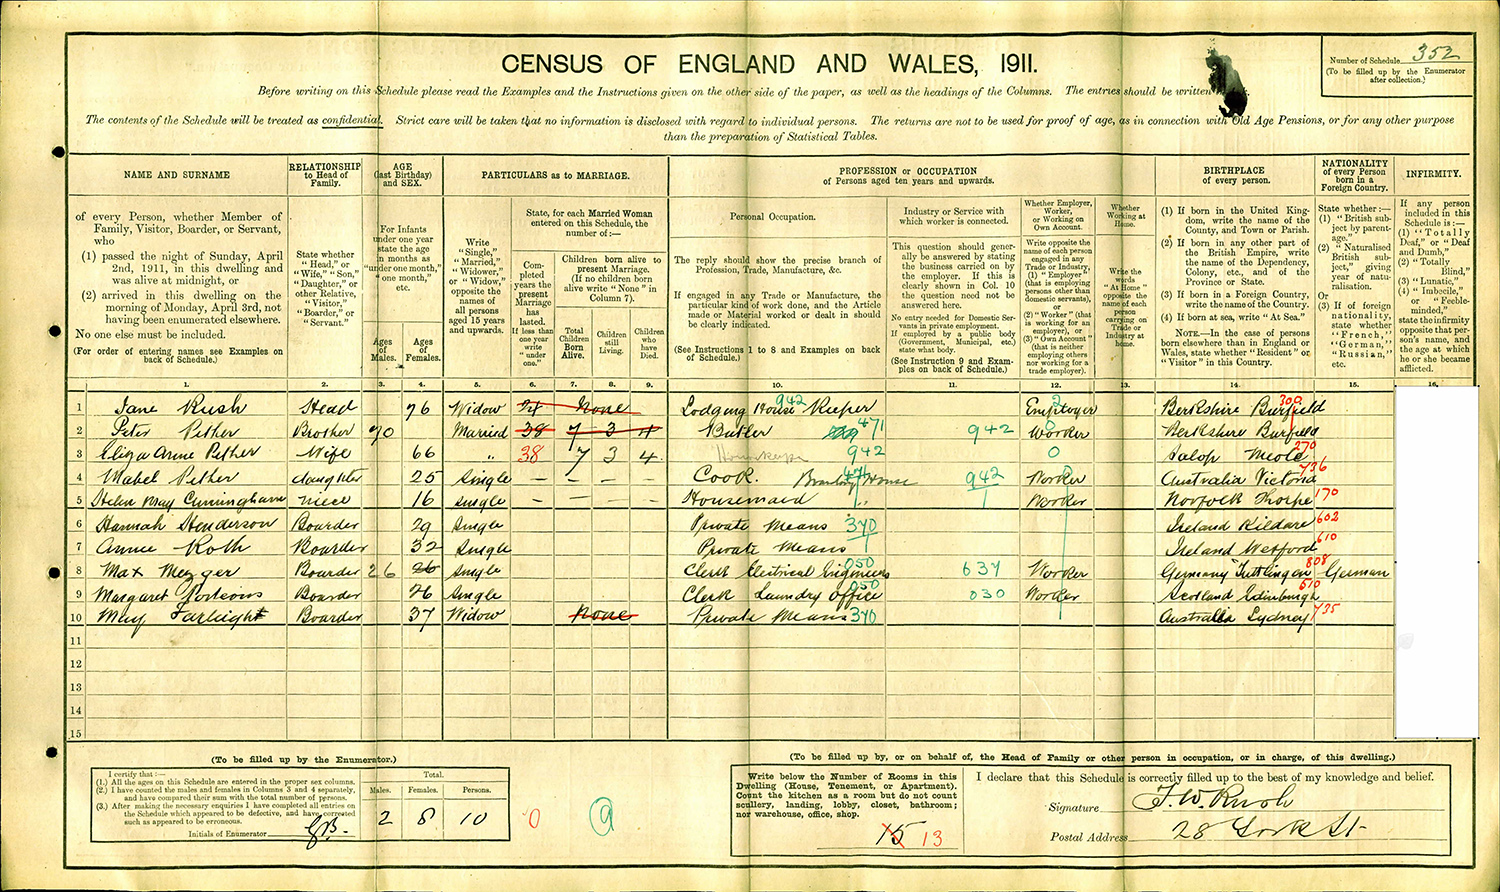 CENSUS OF ENGLAND AND WALES, 1911.
Number of Schedule 352
(To be filled up by the Enumerator
after collection.)
Before writing on this Schedule please read the Examples and the Instructions given on the other side of the paper, as well as the headings of the Columns. The entries should be written
The contents of the Schedule will be treated as confidential. Strict care will be taken that no information is disclosed with regard to individual persons. The returns are not to be used for proof of age, as in connection with Old Age Pensions, or for any other purpose
than the preparation of Statistical Tables.
NAME AND SURNAME
of every Person, whether Member of
Family, Visitor, Boarder, or Servant,
who
(1) passed the night of Sunday, April
2nd, 1911, in this dwelling and
was alive at midnight, or
(2) arrived in this dwelling on the
morning of Monday, April 3rd, not
having been enumerated elsewhere.
No one else must be included.
(For order of entering names see Examples on
back of Schedule.)
RELATIONSHIP
to Head of
Family.
State whether
"Head," or
"Wife," "Son,"
"Daughter," or
other Relative,
"Visitor,"
"Boarder," or
"Servant."
AGE
(last Birthday)
and SEX.
For Infants
under one year
state the age
in months as
"under one month,"
"one month,"
etc.
Ages
of
Males.
Ages
of
Females.
PARTICULARS as to MARRIAGE.
Write
"Single,"
"Married,"
"Widower,"
or "Widow,"
opposite the
names of
all persons
aged 15 years
and upwards.
State, for each Married Woman
entered on this Schedule, the
number of:—
Completed
years the
present
Marriage
has
lasted.
If less than
one year
write
"under
one."
Children born alive to
present Marriage.
(If no children born
alive write "None" in
Column 7).
Total
Children
Born
Alive.
Children
still
Living.
Children
who
have
Died.
PROFESSION or OCCUPATION
of Persons aged ten years and upwards.
Personal Occupation.
The reply should show the precise branch of
Profession, Trade, Manufacture, &c.
If engaged in any Trade or Manufacture, the
particular kind of work done, and the Article
made or Material worked or dealt in should
be clearly indicated.
(See Instructions 1 to 8 and Examples on back
of Schedule.)
Industry or Service with
which worker is connected.
This question should generally
be answered by stating
the business carried on by
the employer. If this is
clearly shown in Col. 10
the question need not be
answered here.
No entry needed for Domestic Servants
in private employment.
If employed by a public body
(Government, Municipal, etc.)
state what body.
(See Instruction 9 and Examples
on back of Schedule.)
Whether Employer,
Worker,
or Working on
Own Account.
Write opposite the
name of each person
engaged in any
Trade or Industry,
(1) "Employer"
(that is employing
persons other than
domestic servants),
or
(2) "Worker" (that
is working for an
employer), or
(3) "Own Account"
(that is neither
employing others
nor working for a
trade employer).
Whether
Working at
Home.
Write the
words
"At Home"
opposite the
name of each
person
carrying on
Trade or
Industry at
home.
BIRTHPLACE
of every person.
(1) If born in the United Kingdom,
write the name of the
County, and Town or Parish.
(2) If born in any other part of
the British Empire, write
the name of the Dependency,
Colony, etc., and of the
Province or State.
(3) If born in a Foreign Country,
write the name of the Country.
(4) If born at sea, write "At Sea."
NOTE.—In the case of persons
born elsewhere than in England or
Wales, state whether "Resident" or
"Visitor" in this Country.
NATIONALITY
of every Person
born in a
Foreign Country.
State whether :—
(1) "British subject
by parentage,"
(2) "Naturalised
British subject,"
giving
year of naturalisation.
Or
(3) If of foreign
nationality,
state whether
"French,"
"German,"
"Russian,"
etc.
INFIRMITY.
If any person
included in this
Schedule is :—
(1) "Totally
Deaf," or "Deaf
and Dumb,"
(2) "Totally
Blind,"
(3) "Lunatic,"
(4) "Imbecile,"
or "Feeble-
minded,"
state the infirmity
opposite that person's
name, and
the age at which
he or she became
afflicted.
1. 2. 3. 4. 5. 6. 7. 8. 9. 10. 11. 12. 13. 14. 15. 16.
1 Jane Rush Head 76 Widow 24 None Lodging House Keeper 942 Employer 2 Berkshire Burfield 300
2 Peter Pether Brother 70 Married 38 7 3 4 Butler 471 942 Worker 0 Berkshire Burfield
3 Eliza Anne Pether Wife 66 " 38 7 3 4 Housekeeper 942 0 Salop Meole 270
4 Mabel Pether daughter 25 Single — — — — Cook. Boarding House 942 Worker Australia Victoria 736
5 Helen May Cunningham niece 16 Single — — — — Housemaid " Worker Norfolk Thorpe 170
6 Hannah Henderson Boarder 29 Single Private Means 370 Ireland Kildare 602
7 Annie Roth Boarder 32 Single Private Means Ireland Wexford 610
8 Max Mezger Boarder 26 26 Single Clerk Electrical Engineers 050 637 Worker Germany Tuttlingen 808 German
9 Margaret Porteous Boarder 26 Single Clerk Laundry Office 050 030 Worker Scotland Edinburgh 510
10 May Farleigh Boarder 37 Widow None Private Means 370 Australia Sydney 735
11
12
13
14
15
(To be filled up by the Enumerator.)
I certify that :—
(1.) All the ages on this Schedule are entered in the proper sex columns.
(2.) I have counted the males and females in Columns 3 and 4 separately,
and have compared their sum with the total number of persons.
(3.) After making the necessary enquiries I have completed all entries on
the Schedule which appeared to be defective, and have corrected
such as appeared to be erroneous.
Initials of Enumerator
Total.
Males. Females. Persons.
2 8 10
0 9
(To be filled up by, or on behalf of, the Head of Family or other person in occupation, or in charge, of this dwelling.)
Write below the Number of Rooms in this
Dwelling (House, Tenement, or Apartment).
Count the kitchen as a room but do not count
scullery, landing, lobby, closet, bathroom;
nor warehouse, office, shop.
15 13
I declare that this Schedule is correctly filled up to the best of my knowledge and belief.
Signature J. W. Rush
Postal Address 28 York St.